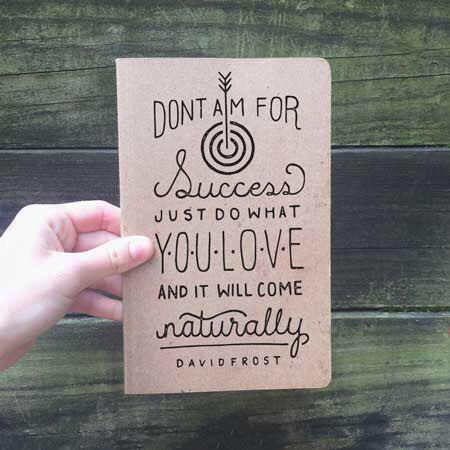 DONT AIM FOR
Success
JUST DO WHAT
Y·O·U·L·O·V·E
AND IT WILL COME
naturally
DAVID FROST